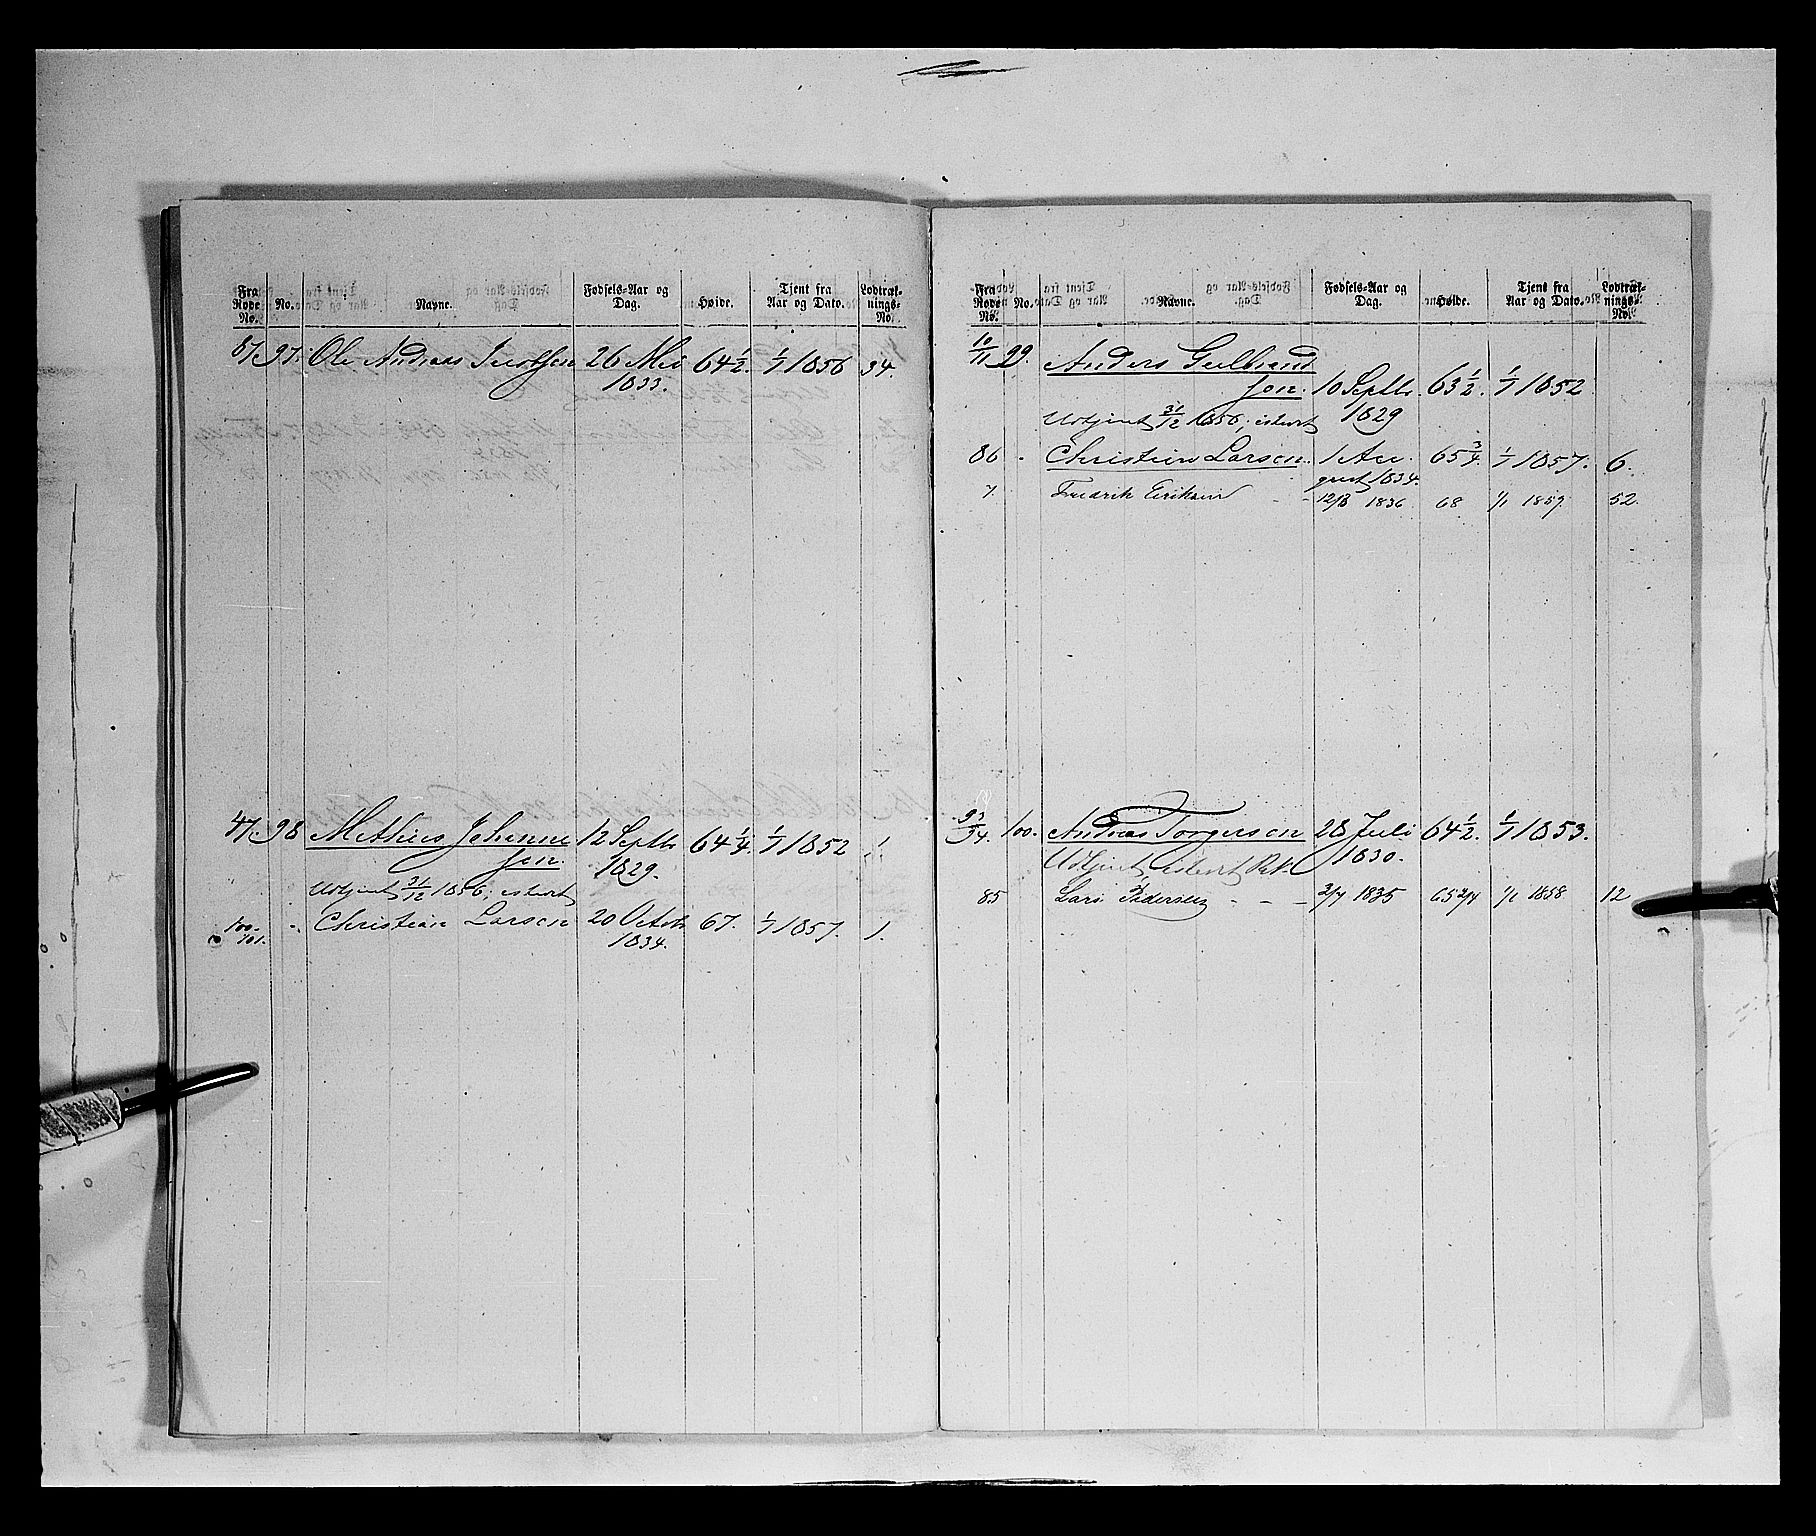 Fra Rode No. No. Navne. Fødsels-Aar og Dag. Høide. Tjent fra Aar og Dato. Lodtræk-nings-No.
87. 97. Ole Andreas 26 Mai 64 1/2. 1/7 1856 34.
1833.
47. 98 Mathias Johanne 12 Septb 64 1/4. 1/7 1852
sen. 1829.
Udtjent 31/12 1856;
100. - Christian Larsen 20 Octob 67. 1/7 1857. 1.
101. 1834.
Fra Rode No. No. Navne. Fødsels-Aar og Dag. Høide. Tjent fra Aar og Dato. Lodtræk-nings-No.
10/11 99. Anders Gulbrand
sen. 10 Septb. 63 1/2. 1/7 1852
Udtjent 31/12 1856; 1829
86 - Christian Larsen. 1 Au- 65 3/4. 1/7 1857. 6.
gust 1834.
7. Fredrik Eriksen - - 12/8 1836 68 1/1 1859. 52.
93/94 100. Andreas Torgersen 28 Juli 64 1/2. 1/7 1853.
Udtjent, 1830.
85 Lars Pedersen - - - 2/7 1835 65 3/4 1/1 1858 12